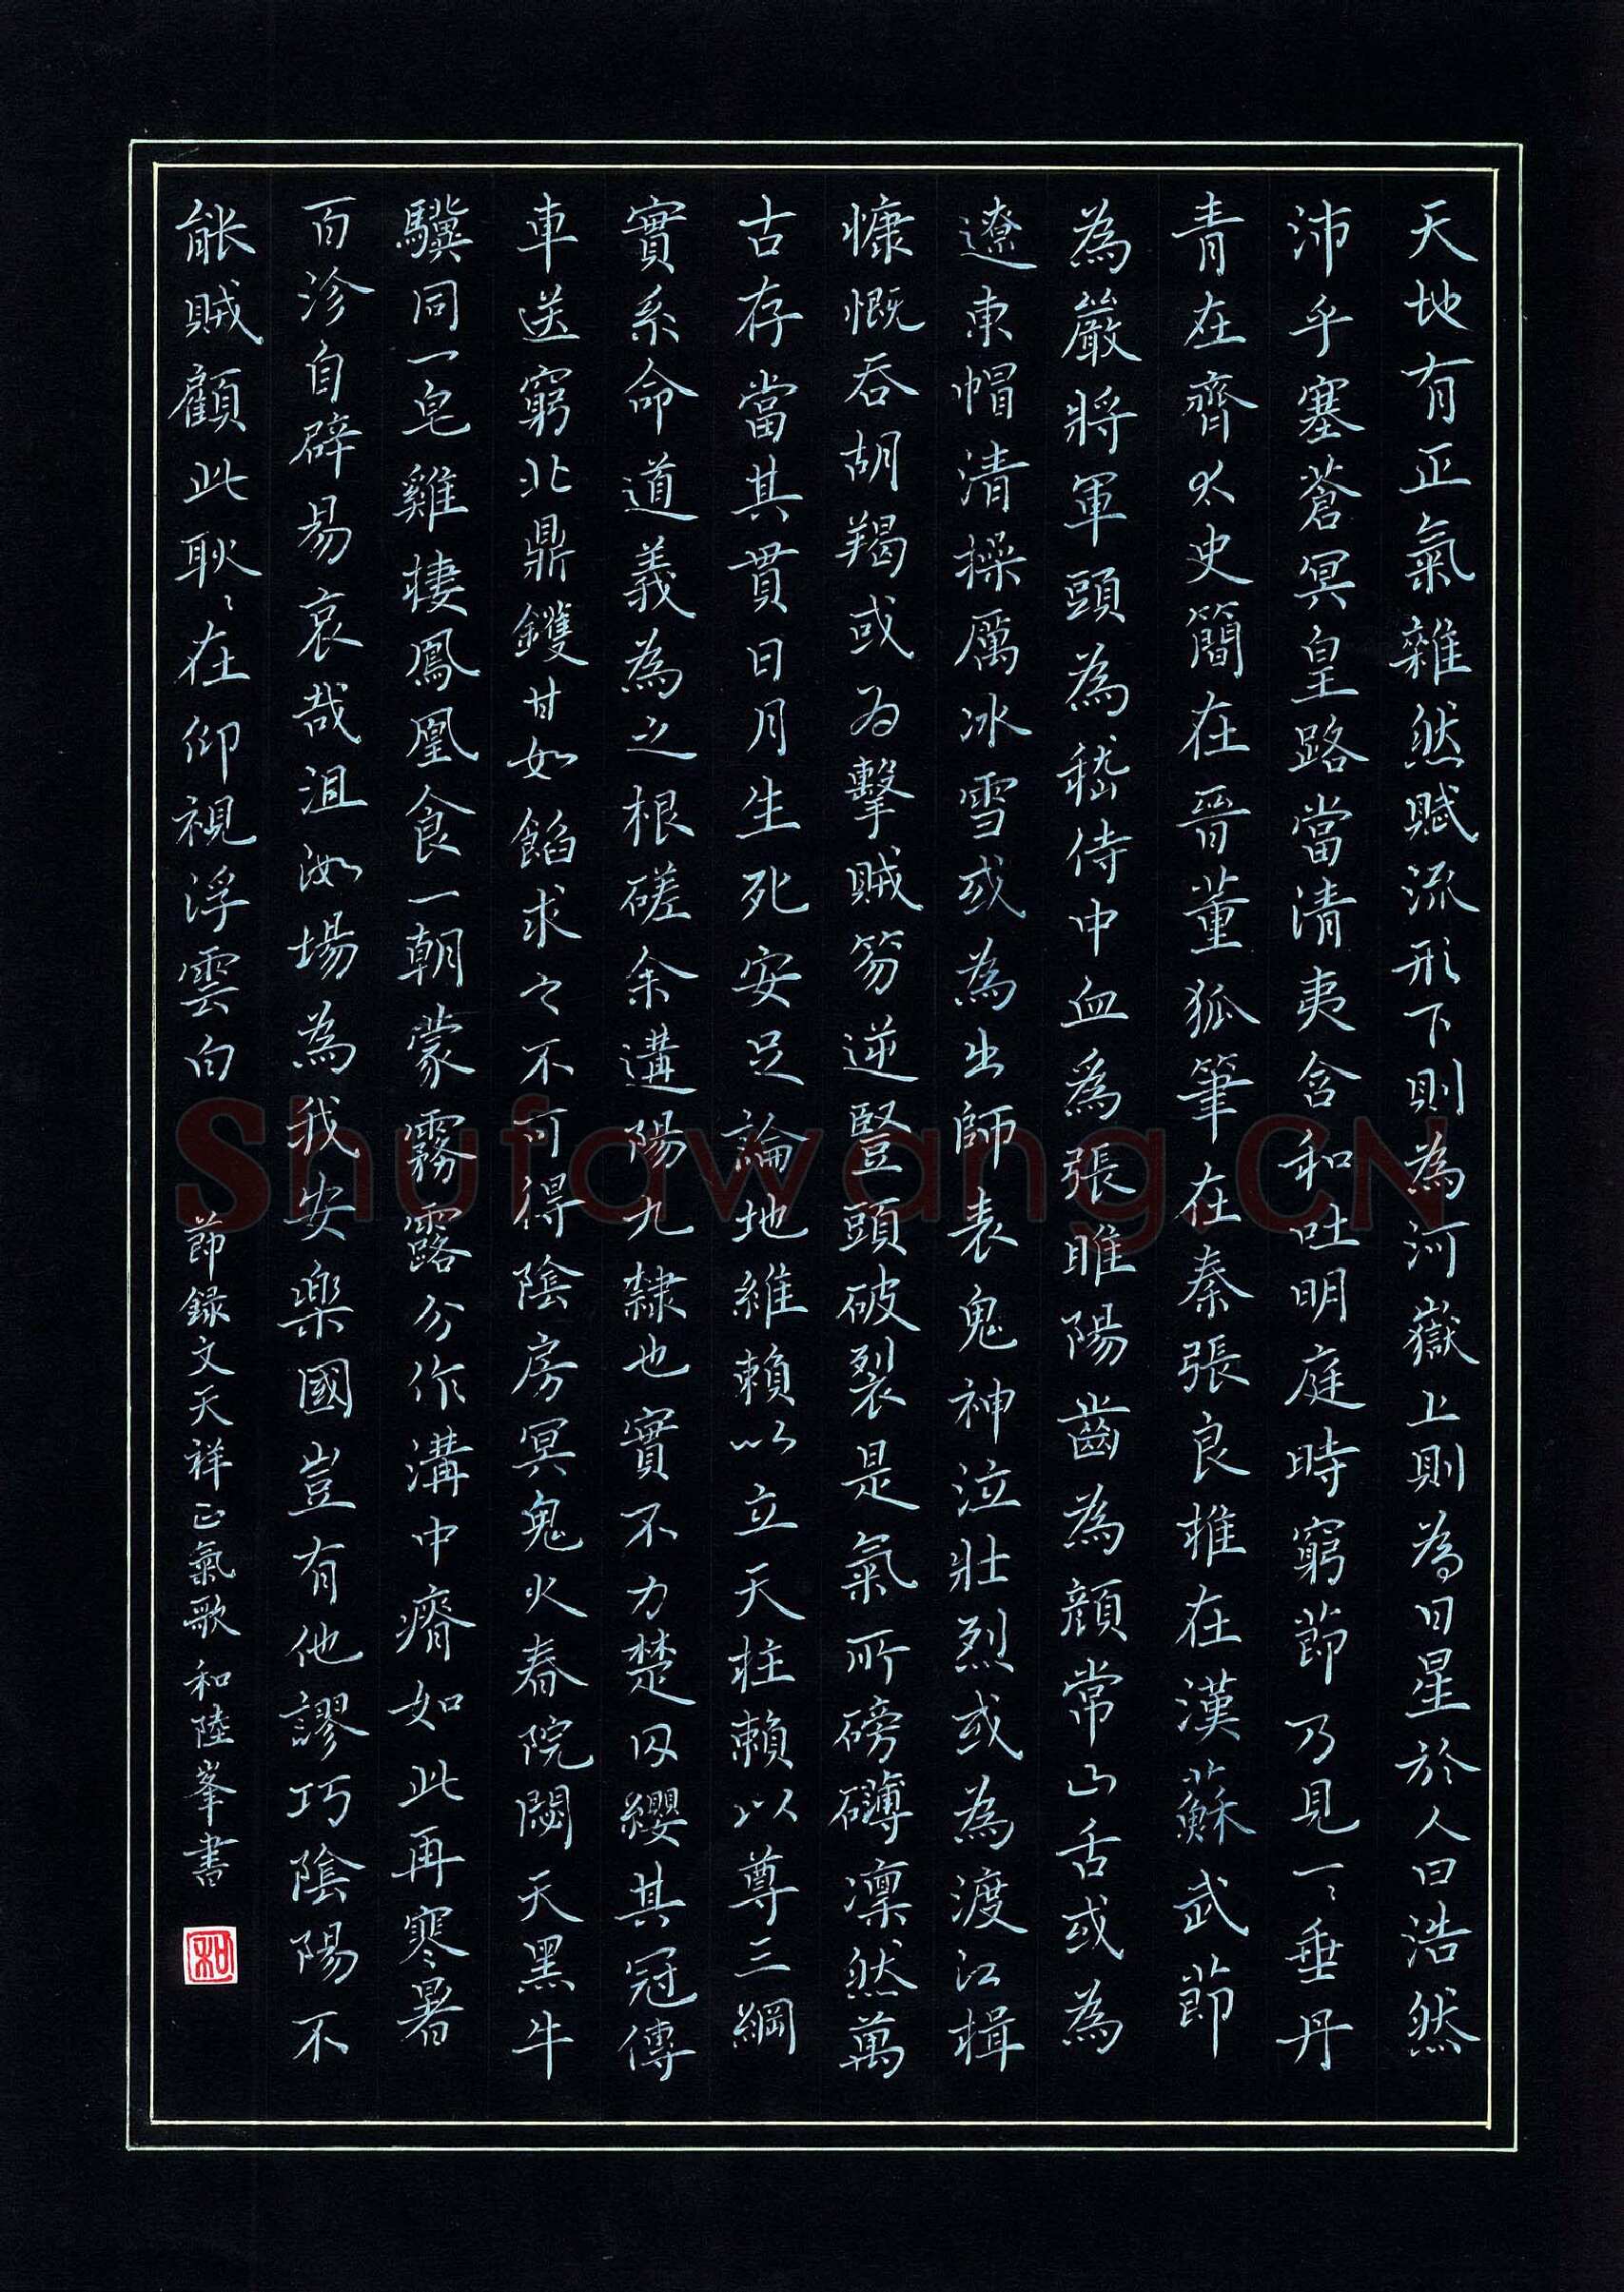 天地有正氣雜然賦流形下則為河嶽上則為日星於人曰浩然
沛乎塞蒼冥皇路當清夷含和吐明庭時窮節乃見一々垂丹
青在齊太史簡在晉董狐筆在秦張良椎在漢蘇武節
為嚴將軍頭為嵇侍中血為張睢陽齒為顏常山舌或為
遼東帽清操厲冰雪或為出師表鬼神泣壯烈或為渡江楫
慷慨吞胡羯或為擊賊笏逆豎頭破裂是氣所磅礴凜然萬
古存當其貫日月生死安足論地維賴以立天柱賴以尊三綱
實系命道義為之根磋余遘陽九隸也實不力楚囚纓其冠傳
車送窮北鼎鑊甘如餡求之不可得陰房冥鬼火春院閟天黑牛
驥同一皂雞棲鳳凰食一朝蒙霧露分作溝中瘠如此再寒暑
百沴自辟易哀哉沮洳場為我安樂國豈有他謬巧陰陽不
能賊顧此耿々在仰視浮雲白
節錄文天祥正氣歌 和陸峯書
和
Shufawang.CN